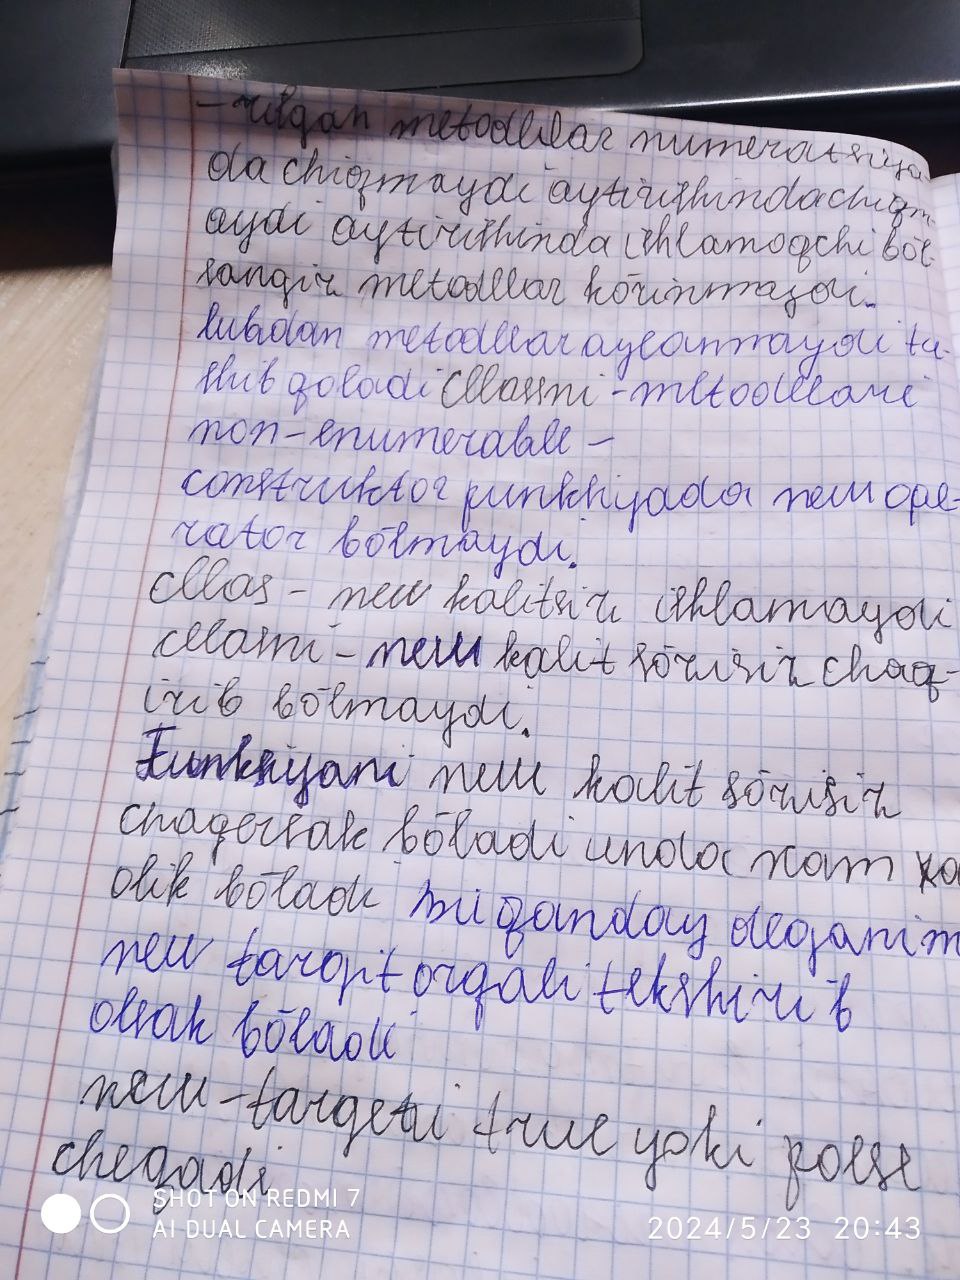 -rilgan metodlar numeratsiya
da chiqmaydi aytirishinda chiqm
aydi aytirishinda ishlamoqchi bōl-
sangiz metodllar kōrinmaydi.
Iubdan metodllar aylanmaydi tu-
shib qoladi Cllassni - metodllari
non-enumerable -
construktor funkhiyada new ope-
rator bōlmaydi.
cllas - new kalitsiz ishlamaydi
cllasni - new kalit sōzisiz chaq-
irib bōlmaydi.
Funksiyani new kalit sōzisiz
chaqersak bōladi unda xam xa
olik bōladi bu qanday deganim
new target orqali tekshirib
olsak bōladi
new-targeti true yoki folse
cheqadi
SHOT ON REDMI 7
AI DUAL CAMERA
2024/5/23 20:43